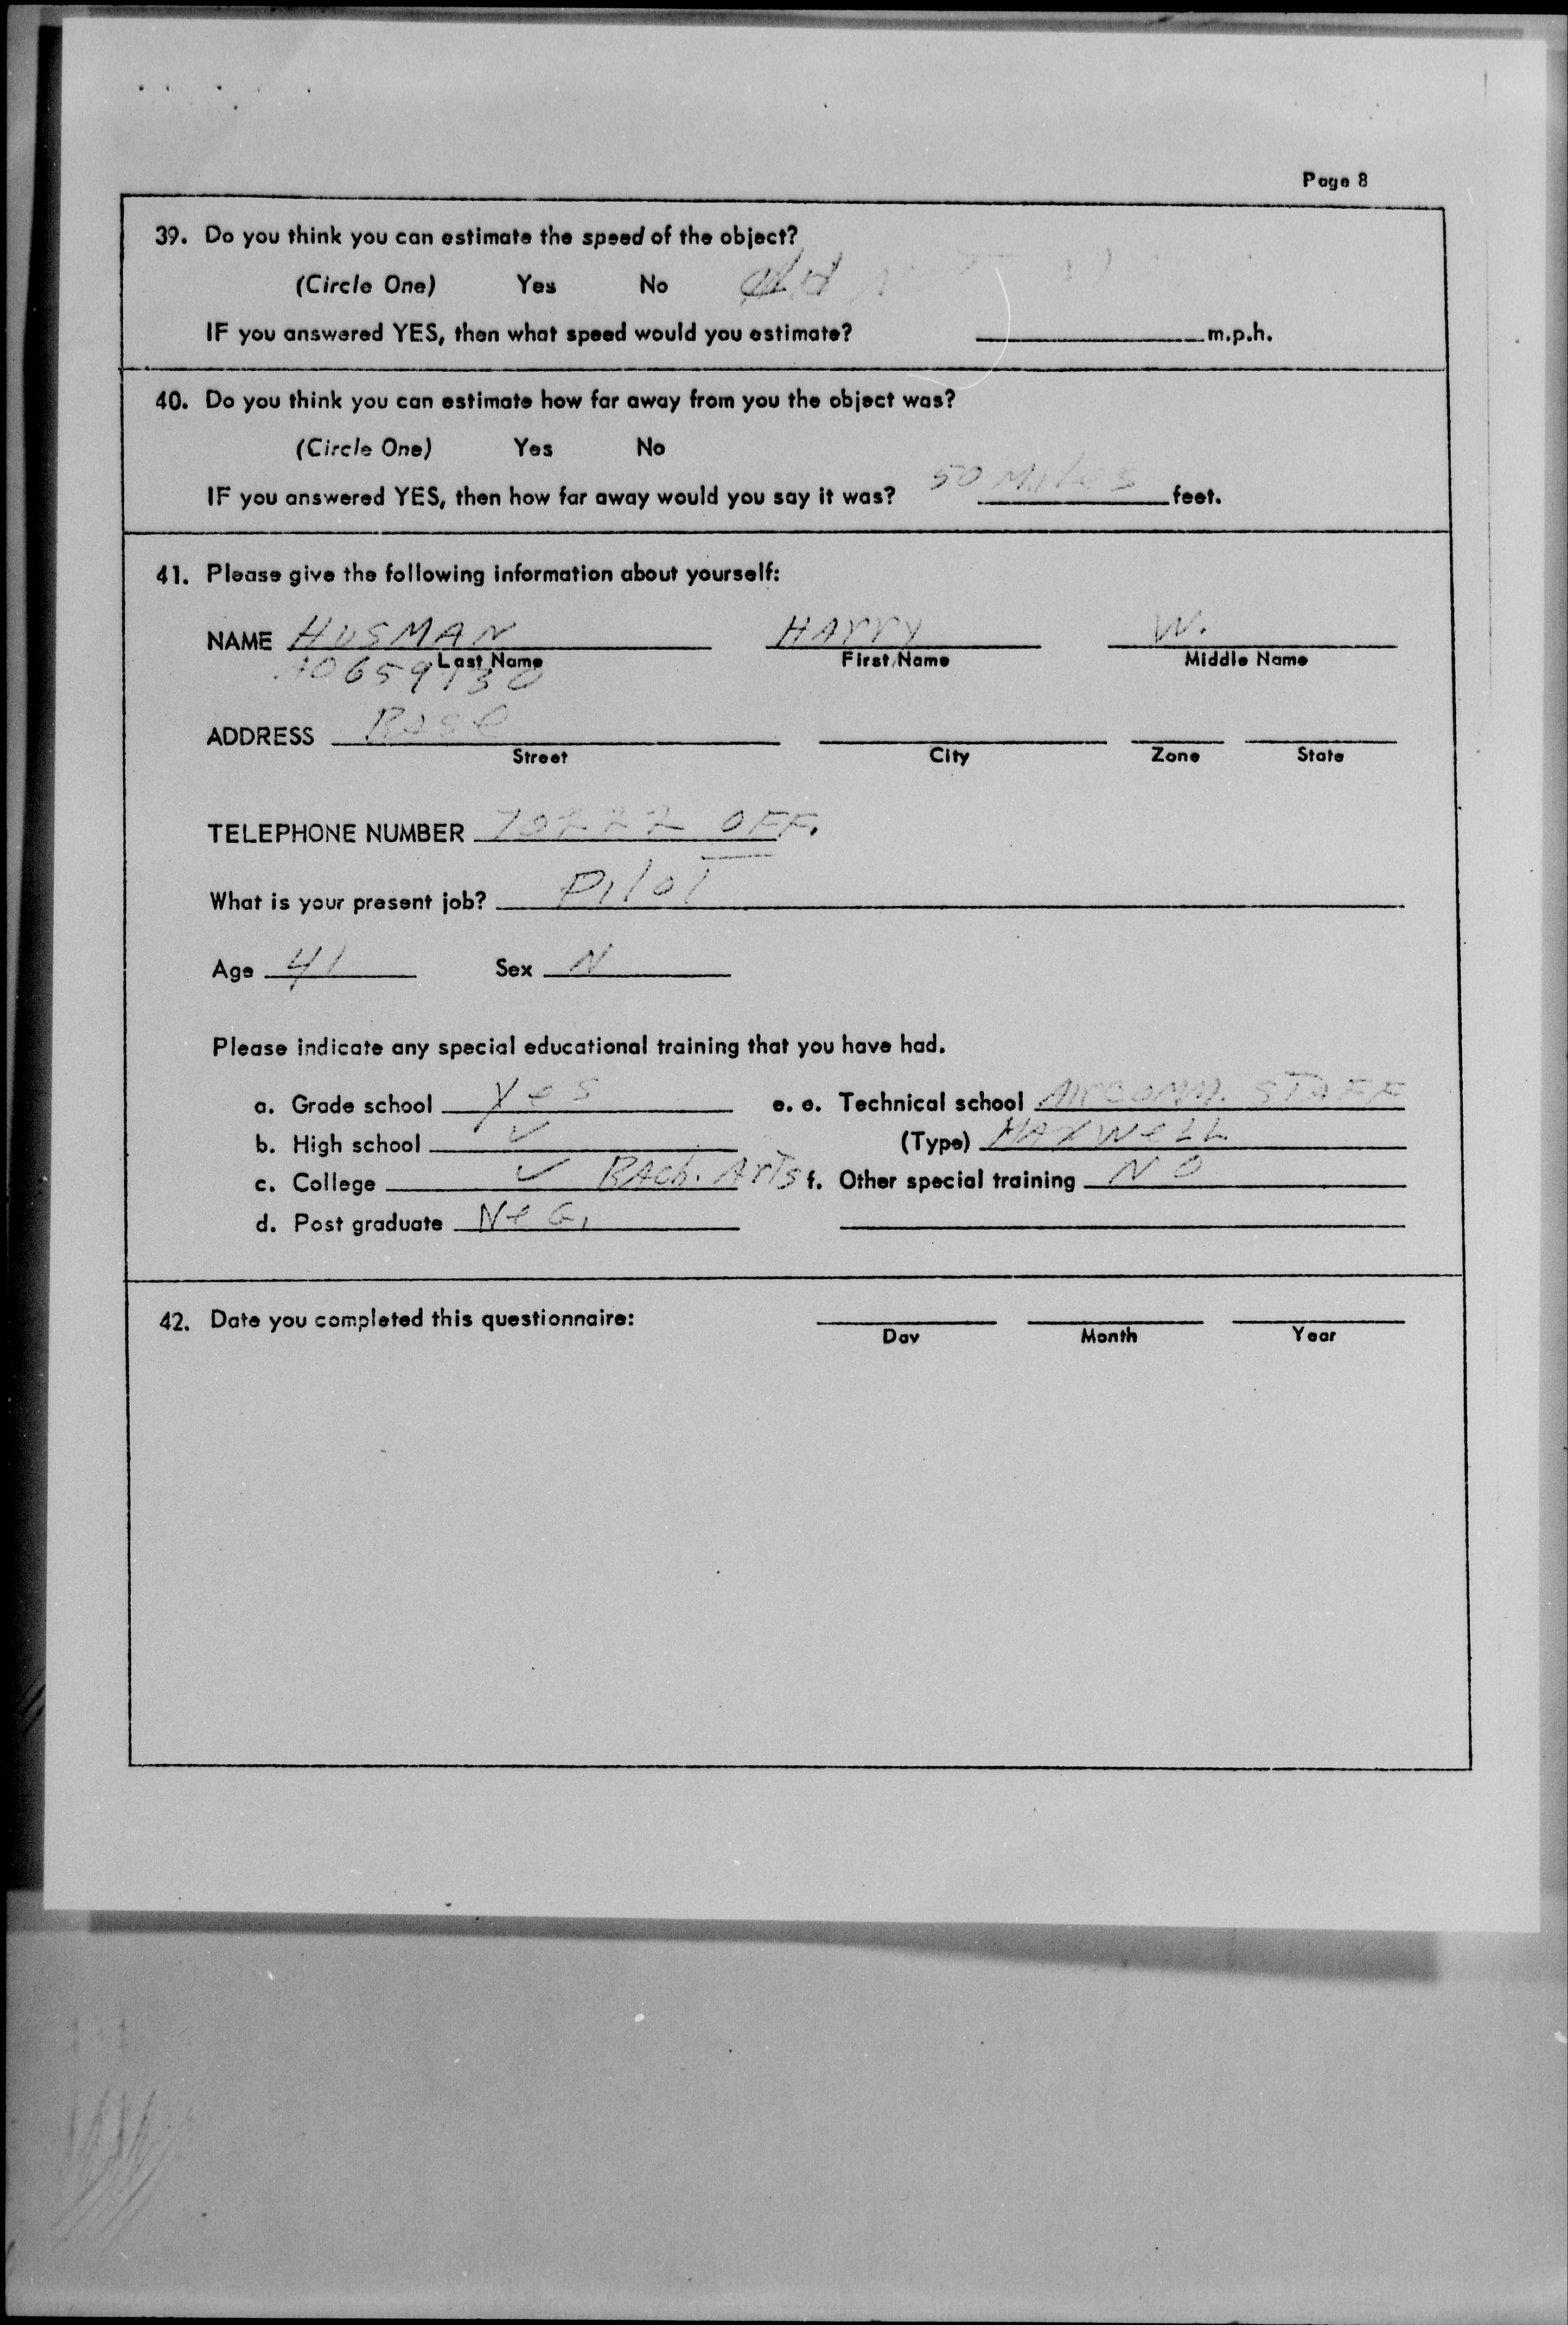 Page 8
39. Do you think you can estimate the speed of the object?
(Circle One) Yes No did
IF you answered YES, then what speed would you estimate? m.p.h.
40. Do you think you can estimate how far away from you the object was?
(Circle One) Yes No
IF you answered YES, then how far away would you say it was? 50 Miles feet.
41. Please give the following information about yourself:
NAME HUSMAN HArry W.
Last Name First Name Middle Name
AO659130
ADDRESS Base
Street City Zone State
TELEPHONE NUMBER 70222 OFF.
What is your present job? Pilot
Age 41 Sex M
Please indicate any special educational training that you have had.
a. Grade school yes e. e. Technical school Air comm. STAFF
b. High school ✓ (Type) MAXWELL
c. College ✓ BAch. ArTs f. Other special training NO
d. Post graduate NeG.
42. Date you completed this questionnaire:
Day Month Year